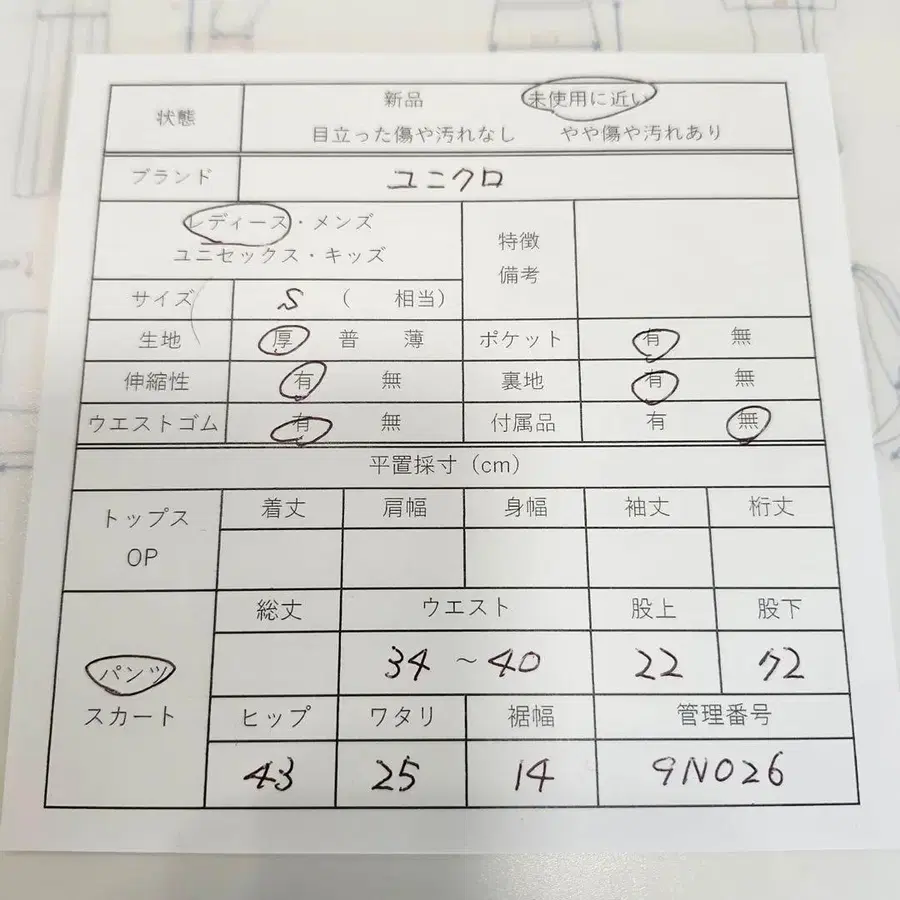 状態 新品 未使用に近い
目立った傷や汚れなし やや傷や汚れあり
ブランド ユニクロ
レディース・メンズ
ユニセックス・キッズ
特徴
備考
サイズ S ( 相当)
生地 厚 普 薄 ポケット 有 無
伸縮性 有 無 裏地 有 無
ウエストゴム 有 無 付属品 有 無
平置採寸(cm)
トップス
OP
着丈 肩幅 身幅 袖丈 裄丈
総丈 ウエスト 股上 股下
34 ~40 22 72
パンツ
スカート
ヒップ ワタリ 裾幅 管理番号
43 25 14 9N026